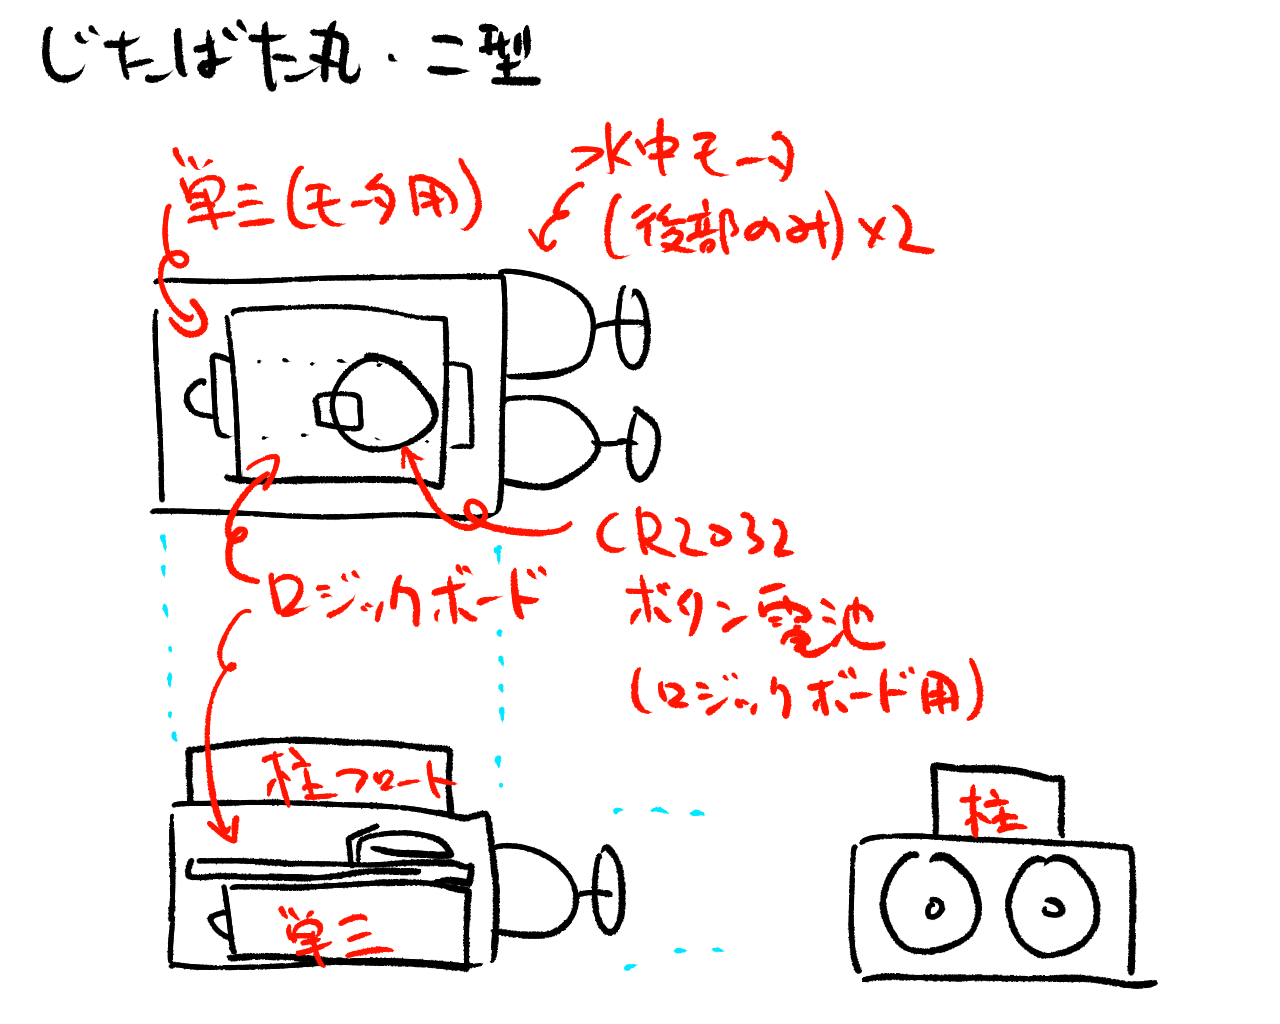 じたばた丸・二型
単三(モータ用)
水中モータ
(後部のみ)×2
CR2032
ボタン電池
(ロジックボード用)
ロジックボード
柱フロート
単三
柱